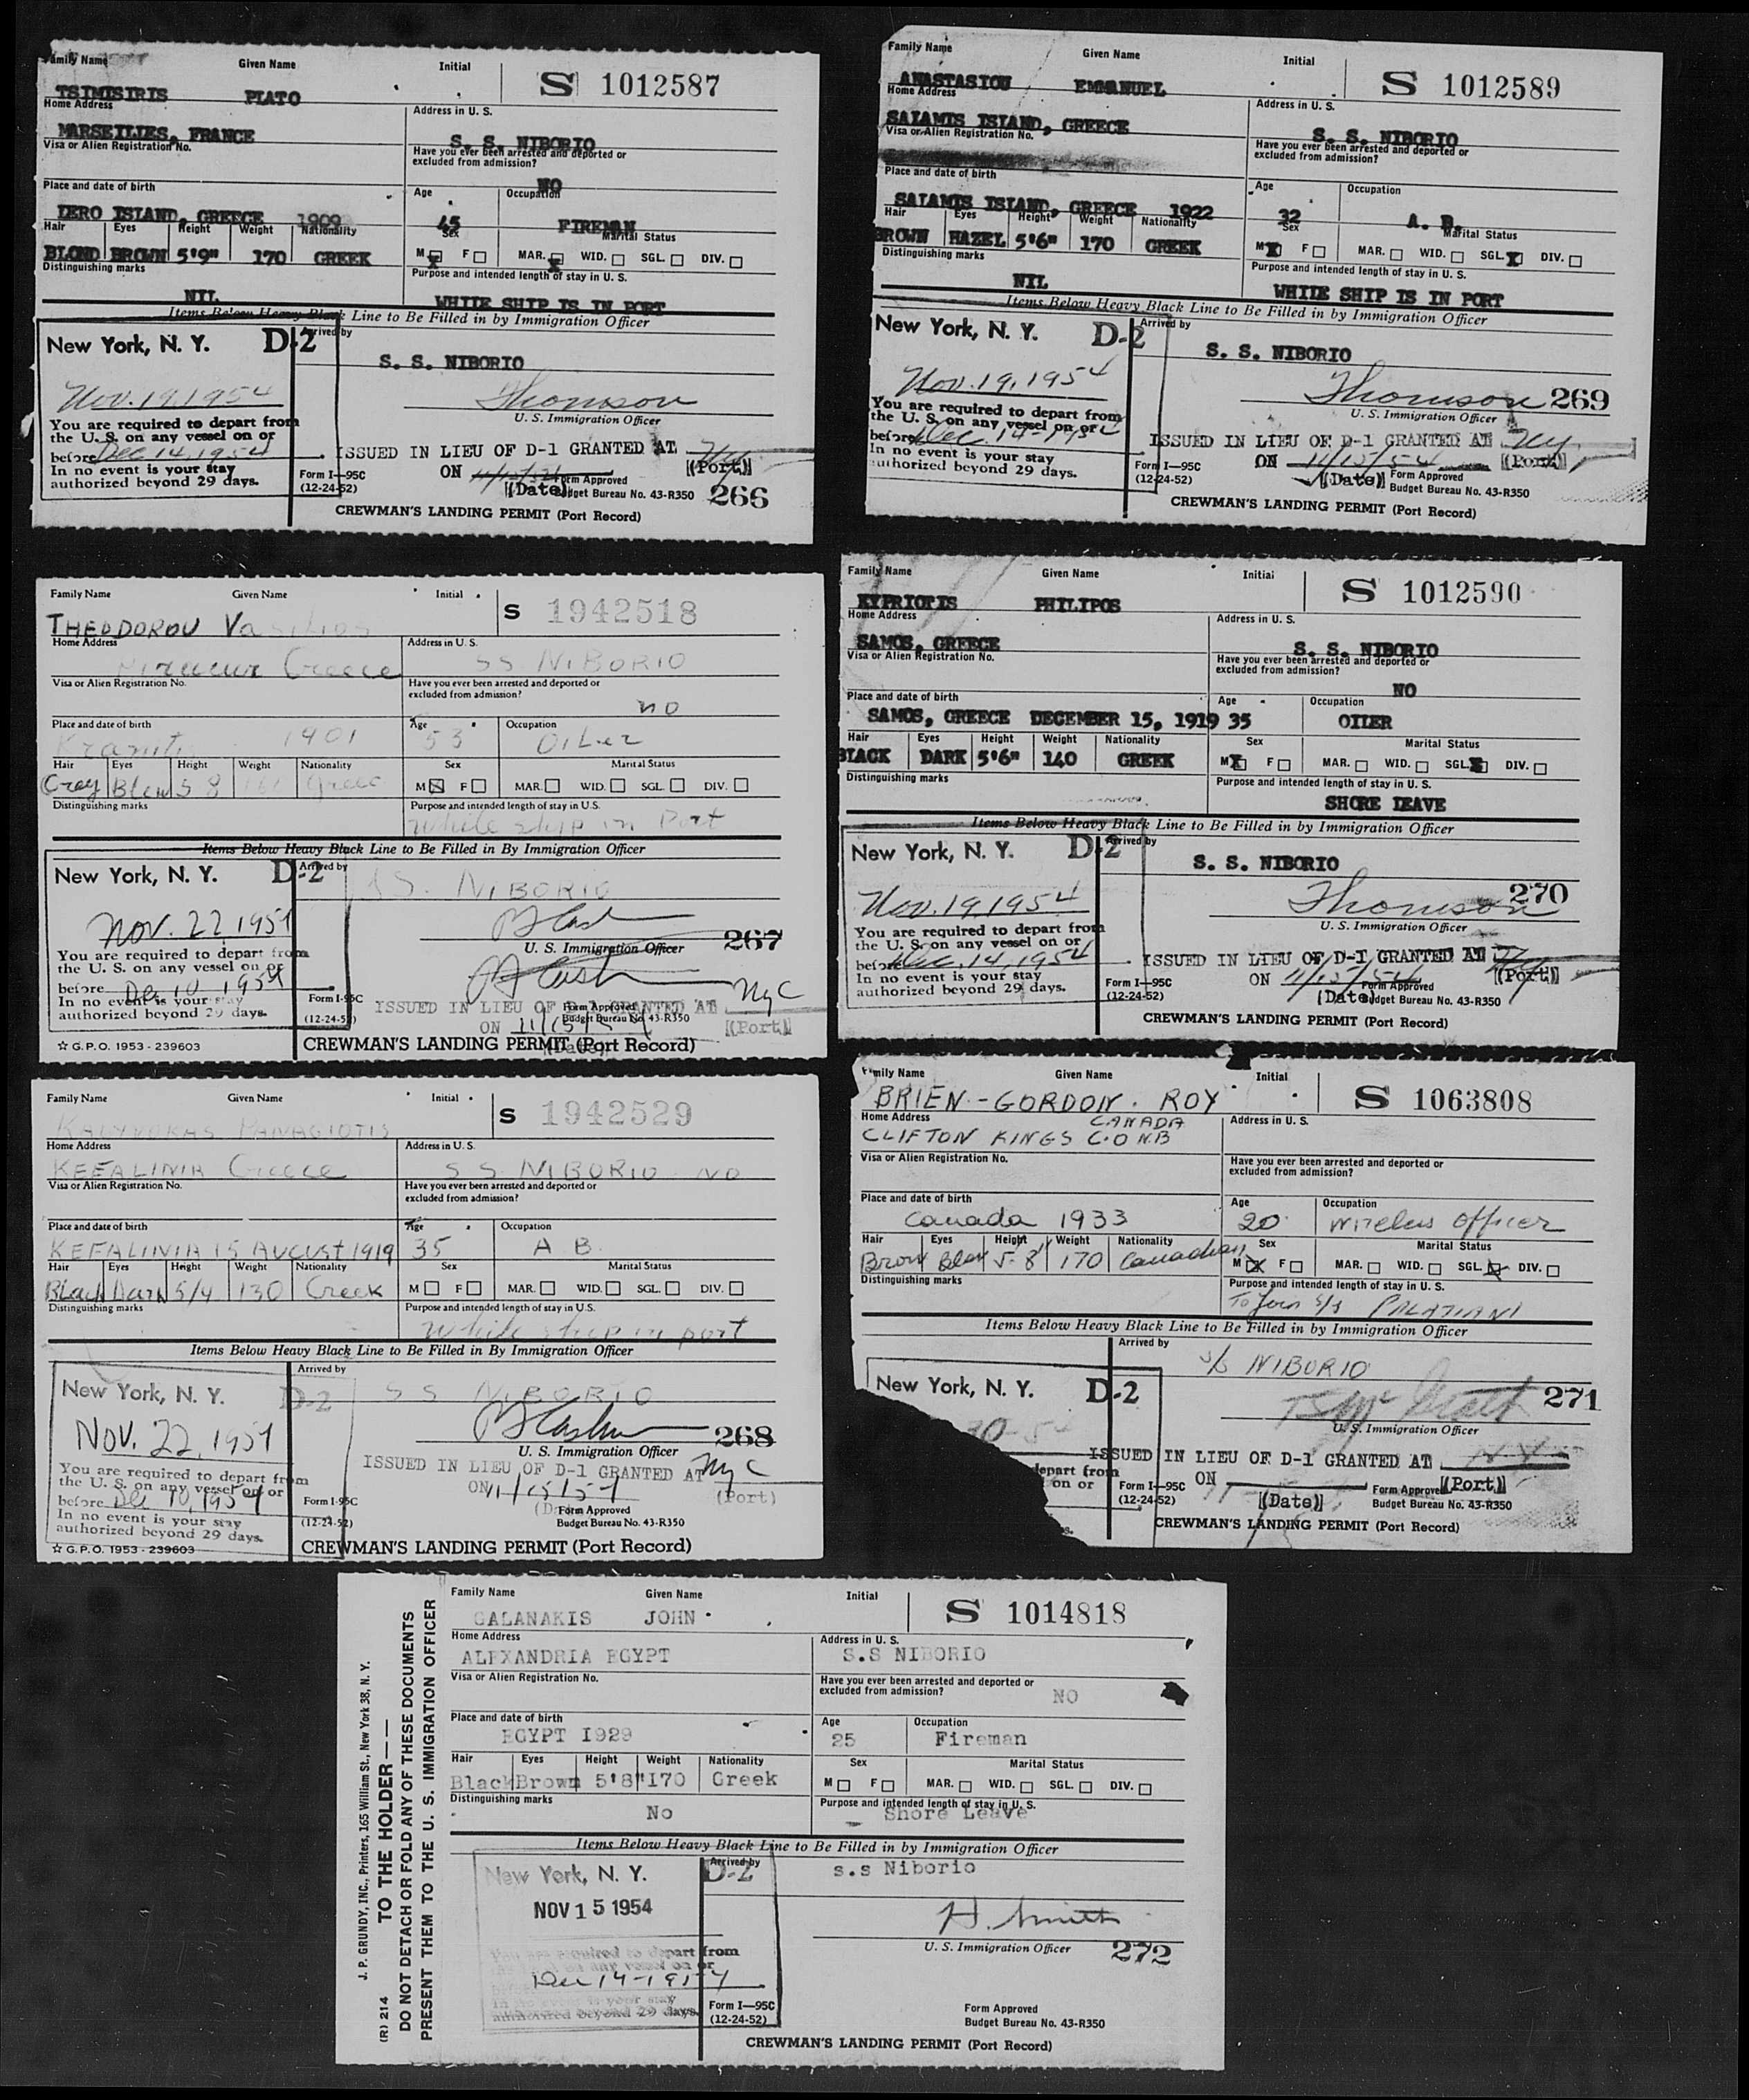 Family Name Given Name Initial
S 1012587
TSIMISIRIS PLATO
Home Address Address in U. S.
MARSEILLES, FRANCE S. S. NIBORIO
Visa or Alien Registration No. Have you ever been arrested and deported or excluded from admission?
NO
Place and date of birth Age Occupation
LERO ISLAND, GREECE 1909 45 FIREMAN
Hair Eyes Height Weight Nationality Sex Marital Status
BLOND BROWN 5'9" 170 GREEK M X F MAR. X WID. SGL. DIV.
Distinguishing marks Purpose and intended length of stay in U. S.
NIL WHILE SHIP IS IN PORT
Items Below Heavy Black Line to Be Filled in by Immigration Officer
New York, N. Y. D-2 Arrived by
S. S. NIBORIO
Nov. 19, 1954 Thomson
U. S. Immigration Officer
You are required to depart from
the U. S. on any vessel on or
before Dec 14, 1954
In no event is your stay
authorized beyond 29 days.
ISSUED IN LIEU OF D-1 GRANTED AT NY
ON 11/15/54 (Port)
(Date)
Form I—95C
(12-24-52)
Form Approved
Budget Bureau No. 43-R350
266
CREWMAN'S LANDING PERMIT (Port Record)
Family Name Given Name Initial
S 1012589
ANASTASIOU EMMANUEL
Home Address Address in U. S.
SALAMIS ISLAND, GREECE S. S. NIBORIO
Visa or Alien Registration No. Have you ever been arrested and deported or excluded from admission?
Place and date of birth Age Occupation
SALAMIS ISLAND, GREECE 1922 32 A. B.
Hair Eyes Height Weight Nationality Sex Marital Status
BROWN HAZEL 5'6" 170 GREEK M X F MAR. WID. SGL. X DIV.
Distinguishing marks Purpose and intended length of stay in U. S.
NIL WHILE SHIP IS IN PORT
Items Below Heavy Black Line to Be Filled in by Immigration Officer
New York, N. Y. D-2 Arrived by
S. S. NIBORIO
Nov. 19, 1954 Thomson 269
U. S. Immigration Officer
You are required to depart from
the U. S. on any vessel on or
before Dec. 14-1954
In no event is your stay
authorized beyond 29 days.
ISSUED IN LIEU OF D-1 GRANTED AT NY
ON 11/15/54 (Port)
(Date)
Form I—95C
(12-24-52)
Form Approved
Budget Bureau No. 43-R350
CREWMAN'S LANDING PERMIT (Port Record)
Family Name Given Name Initial
S 1942518
THEODOROU Vasilios
Home Address Address in U. S.
Greece SS NIBORIO
Visa or Alien Registration No. Have you ever been arrested and deported or excluded from admission?
no
Place and date of birth Age Occupation
1901 53 Oiler
Hair Eyes Height Weight Nationality Sex Marital Status
Gray Blew 5 8 Greec M X F MAR. WID. SGL. DIV.
Distinguishing marks Purpose and intended length of stay in U.S.
While ship in Port
Items Below Heavy Black Line to Be Filled in By Immigration Officer
New York, N. Y. D-2 Arrived by
SS. NIBORIO
Nov. 22, 1954
U. S. Immigration Officer 267
You are required to depart from
the U. S. on any vessel on or
before Dec 10 1954
In no event is your stay
authorized beyond 29 days.
ISSUED IN LIEU OF D-1 GRANTED AT NYC
ON 11/15/54 (Port)
(Date)
Form I-95C
(12-24-52)
Form Approved
Budget Bureau No. 43-R350
☆ G.P.O. 1953 - 239603
CREWMAN'S LANDING PERMIT (Port Record)
Family Name Given Name Initial
S 1012590
KYPRIOTIS PHILIPOS
Home Address Address in U. S.
SAMOS, GREECE S. S. NIBORIO
Visa or Alien Registration No. Have you ever been arrested and deported or excluded from admission?
NO
Place and date of birth Age Occupation
SAMOS, GREECE DECEMBER 15, 1919 35 OILER
Hair Eyes Height Weight Nationality Sex Marital Status
BLACK DARK 5'6" 140 GREEK M X F MAR. WID. SGL. X DIV.
Distinguishing marks Purpose and intended length of stay in U. S.
SHORE LEAVE
Items Below Heavy Black Line to Be Filled in by Immigration Officer
New York, N. Y. D-2 Arrived by
S. S. NIBORIO
270
Nov. 19, 1954 Thomson
U. S. Immigration Officer
You are required to depart from
the U. S. on any vessel on or
before Dec. 14, 1954
In no event is your stay
authorized beyond 29 days.
ISSUED IN LIEU OF D-1 GRANTED AT NY
ON 11/15/54 (Port)
(Date)
Form I—95C
(12-24-52)
Form Approved
Budget Bureau No. 43-R350
CREWMAN'S LANDING PERMIT (Port Record)
Family Name Given Name Initial
S 1942529
KALYVOKAS PANAGIOTIS
Home Address Address in U. S.
KEFALINIA Greece S S NIBORIO NO
Visa or Alien Registration No. Have you ever been arrested and deported or excluded from admission?
Place and date of birth Age Occupation
KEFALINIA 15 AUGUST 1919 35 A B.
Hair Eyes Height Weight Nationality Sex Marital Status
Black Dark 5/4 130 Greek M F MAR. WID. SGL. DIV.
Distinguishing marks Purpose and intended length of stay in U.S.
While ship in port
Items Below Heavy Black Line to Be Filled in By Immigration Officer
New York, N. Y. D-2 Arrived by
S S NIBORIO
Nov. 22, 1954 268
U. S. Immigration Officer
You are required to depart from
the U. S. on any vessel on or
before Dec 10, 1954
In no event is your stay
authorized beyond 29 days.
ISSUED IN LIEU OF D-1 GRANTED AT NYC
ON 11/15/54 (Port)
(Date)
Form I-95C
(12-24-52)
Form Approved
Budget Bureau No. 43-R350
☆ G.P.O. 1953 - 239603
CREWMAN'S LANDING PERMIT (Port Record)
Family Name Given Name Initial
S 1063808
BRIEN - GORDON. ROY
Home Address Address in U. S.
CANADA
CLIFTON KINGS C.O N.B
Visa or Alien Registration No. Have you ever been arrested and deported or excluded from admission?
Place and date of birth Age Occupation
Canada 1933 20 Wireless Officer
Hair Eyes Height Weight Nationality Sex Marital Status
Brown Blue 5-8" 170 Canadian M X F MAR. WID. SGL. X DIV.
Distinguishing marks Purpose and intended length of stay in U. S.
To Join S/S PALATIANI
Items Below Heavy Black Line to Be Filled in by Immigration Officer
Arrived by
S/S NIBORIO
New York, N. Y. D-2 271
30-54
U. S. Immigration Officer
ISSUED IN LIEU OF D-1 GRANTED AT N.Y.
depart from
on or
ON (Port)
(Date)
Form I—95C
(12-24-52)
Form Approved
Budget Bureau No. 43-R350
CREWMAN'S LANDING PERMIT (Port Record)
J. P. GRUNDY, INC., Printers, 165 William St., New York 38, N. Y.
(R) 214 TO THE HOLDER——
DO NOT DETACH OR FOLD ANY OF THESE DOCUMENTS
PRESENT THEM TO THE U. S. IMMIGRATION OFFICER
Family Name Given Name Initial
S 1014818
GALANAKIS JOHN
Home Address Address in U. S.
ALEXANDRIA EGYPT S.S NIBORIO
Visa or Alien Registration No. Have you ever been arrested and deported or excluded from admission?
NO
Place and date of birth Age Occupation
EGYPT I929 25 Fireman
Hair Eyes Height Weight Nationality Sex Marital Status
Black Brown 5'8" I70 Greek M F MAR. WID. SGL. DIV.
Distinguishing marks Purpose and intended length of stay in U. S.
No Shore Leave
Items Below Heavy Black Line to Be Filled in by Immigration Officer
New York, N. Y. D-2 Arrived by
s.s Niborio
NOV 15 1954
H. Smith
U. S. Immigration Officer 272
You are required to depart from
the U. S. on any vessel on or
before Dec 14-1954
In no event is your stay
authorized beyond 29 days.
Form I—95C
(12-24-52)
Form Approved
Budget Bureau No. 43-R350
CREWMAN'S LANDING PERMIT (Port Record)